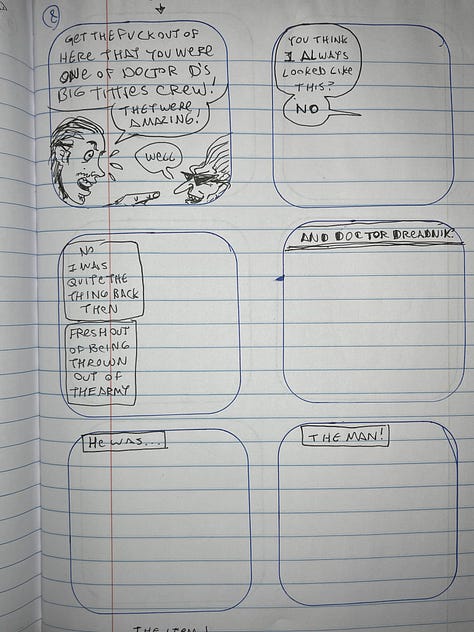 8
GET THE FUCK OUT OF
HERE THAT YOU WERE
ONE OF DOCTOR D'S
BIG TITTIES CREW!
THEY WERE
AMAZING!
WELL
YOU THINK
I ALWAYS
LOOKED LIKE
THIS?
NO
NO
I WAS
QUITE THE
THING BACK
THEN
FRESH OUT
OF BEING
THROWN
OUT OF
THE ARMY
AND DOCTOR DREADNIK?
He WAS...
THE MAN!